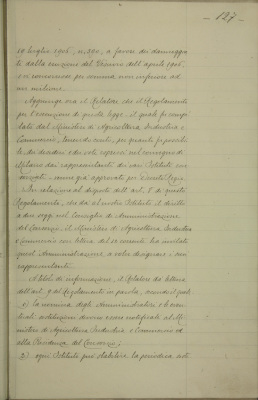 - 127 -
19 luglio 1906, n. 390, a favore dei danneggia
ti dalla eruzione del Vesuvio dell'aprile 1906,
e in concorrenza per somma non inferiore ad
un milione.
Aggiunge ora il Relatore che il Regolamento
per l'esecuzione di questa legge, il quale fu compi
lato dal Ministero di Agricoltura, Industria e
Commercio, tenendo conto, per quanto fu possibi
le, dei desideri e dei voti espressi nel convegno di
Milano dai rappresentanti di vari Istituti con
sorziati, venne già approvato per Decreto Regio.
In relazione al disposto dell'art. 8 di questo
Regolamento, che dà al nostro Istituto il diritto
a due seggi nel Consiglio di Amministrazione
del Consorzio, il Ministero di Agricoltura Industria
e Commercio con lettera del corrente ha invitato
quest'Amministrazione a voler designare i suoi
rappresentanti.
A titolo di informazione, il Relatore dà lettura
dell'art. 9 del Regolamento in parola, secondo il quale
1) la nomina degli Amministratori e le even
tuali sostituzioni devono essere notificate al Mi
nistero di Agricoltura Industria e Commercio ed
alla Presidenza del Consorzio;
2) ogni Istituto può stabilire la periodica sosti